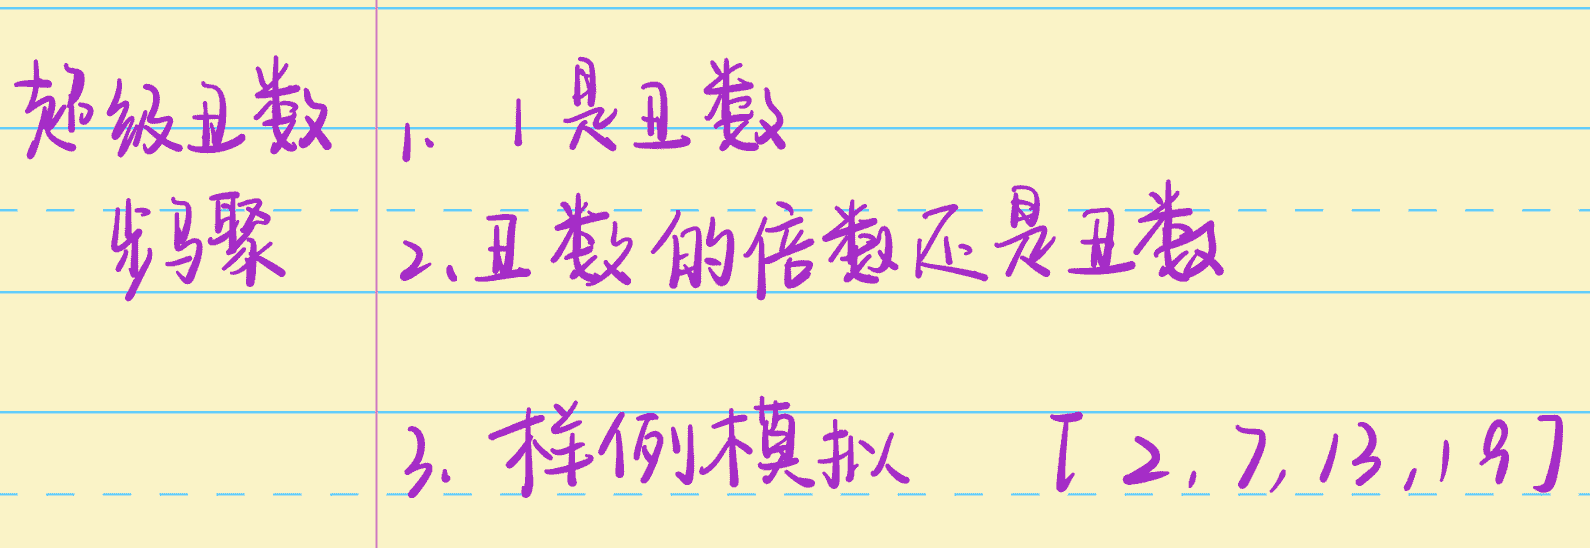 超级丑数
步骤
1. 1是丑数
2、丑数的倍数还是丑数
3. 样例模拟 [2,7,13,19]